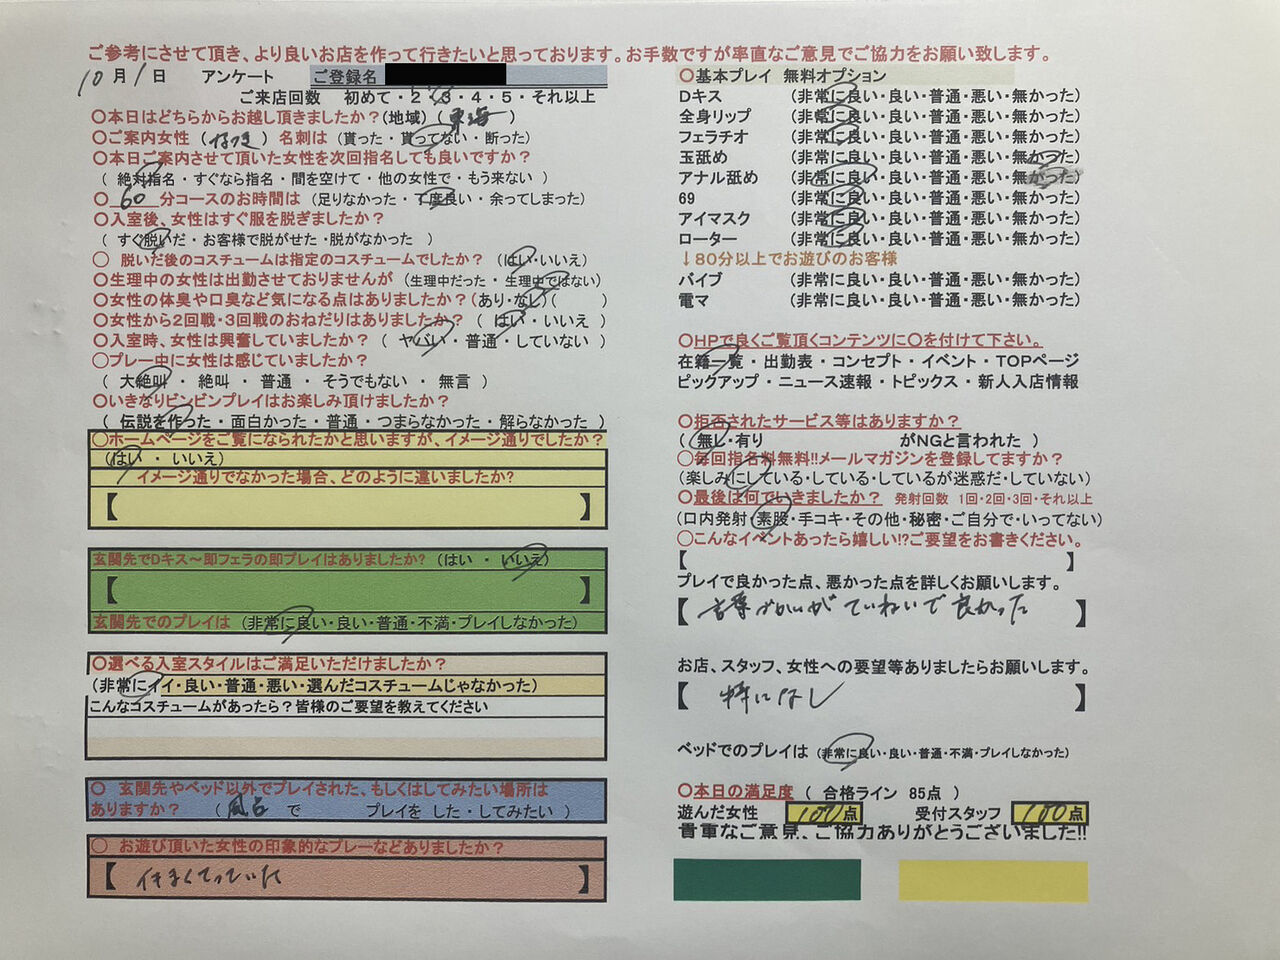 ご参考にさせて頂き、より良いお店を作って行きたいと思っております。お手数ですが率直なご意見でご協力をお願い致します。
10月1日 アンケート ご登録名
ご来店回数 初めて・2・3・4・5・それ以上
〇本日はどちらからお越し頂きましたか?(地域)(東海)
〇ご案内女性 (なつき) 名刺は (貰った・貰ってない・断った)
〇本日ご案内させて頂いた女性を次回指名しても良いですか?
(絶対指名・すぐなら指名・間を空けて・他の女性で・もう来ない)
〇 60 分コースのお時間は (足りなかった・丁度良い・余ってしまった)
〇入室後、女性はすぐ服を脱ぎましたか?
(すぐ脱いだ・お客様で脱がせた・脱がなかった )
〇 脱いだ後のコスチュームは指定のコスチュームでしたか? (はい・いいえ)
〇生理中の女性は出勤させておりませんが (生理中だった・生理中ではない)
〇女性の体臭や口臭など気になる点はありましたか?(あり・なし)( )
〇女性から2回戦・3回戦のおねだりはありましたか? ( はい・いいえ )
〇入室時、女性は興奮していましたか? ( ヤバい・普通・していない )
〇プレー中に女性は感じていましたか?
( 大絶叫 ・ 絶叫 ・ 普通 ・ そうでもない ・ 無言 )
〇いきなりビンビンプレイはお楽しみ頂けましたか?
( 伝説を作った・面白かった・普通・つまらなかった・解らなかった )
〇ホームページをご覧になられたかと思いますが、イメージ通りでしたか?
(はい ・ いいえ)
イメージ通りでなかった場合、どのように違いましたか?
【 】
玄関先でDキス〜即フェラの即プレイはありましたか? (はい ・ いいえ)
【 】
玄関先でのプレイは (非常に良い・良い・普通・不満・プレイしなかった)
〇選べる入室スタイルはご満足いただけましたか?
(非常にイイ・良い・普通・悪い・選んだコスチュームじゃなかった)
こんなコスチュームがあったら?皆様のご要望を教えてください
〇 玄関先やベッド以外でプレイされた、もしくはしてみたい場所は
ありますか? ( 風呂 で プレイを した・してみたい )
〇 お遊び頂いた女性の印象的なプレーなどありましたか?
【 イキまくってていた 】
〇基本プレイ 無料オプション
Dキス (非常に良い・良い・普通・悪い・無かった)
全身リップ (非常に良い・良い・普通・悪い・無かった)
フェラチオ (非常に良い・良い・普通・悪い・無かった)
玉舐め (非常に良い・良い・普通・悪い・無かった)
アナル舐め (非常に良い・良い・普通・悪い・無かった)
69 (非常に良い・良い・普通・悪い・無かった)
アイマスク (非常に良い・良い・普通・悪い・無かった)
ローター (非常に良い・良い・普通・悪い・無かった)
↓80分以上でお遊びのお客様
バイブ (非常に良い・良い・普通・悪い・無かった)
電マ (非常に良い・良い・普通・悪い・無かった)
〇HPで良くご覧頂くコンテンツに〇を付けて下さい。
在籍一覧・出勤表・コンセプト・イベント・TOPページ
ピックアップ・ニュース速報・トピックス・新人入店情報
〇拒否されたサービス等はありますか?
( 無し・有り がNGと言われた )
〇毎回指名料無料!!メールマガジンを登録してますか?
(楽しみにしている・している・しているが迷惑だ・していない)
〇最後は何でいきましたか? 発射回数 1回・2回・3回・それ以上
(口内発射・素股・手コキ・その他・秘密・ご自分で・いってない)
〇こんなイベントあったら嬉しい!?ご要望をお書きください。
【 】
プレイで良かった点、悪かった点を詳しくお願いします。
【 言葉づかいがていねいで良かった 】
お店、スタッフ、女性への要望等ありましたらお願いします。
【 特になし 】
ベッドでのプレイは (非常に良い・良い・普通・不満・プレイしなかった)
〇本日の満足度 ( 合格ライン 85点 )
遊んだ女性 100点 受付スタッフ 100点
貴重なご意見、ご協力ありがとうございました!!